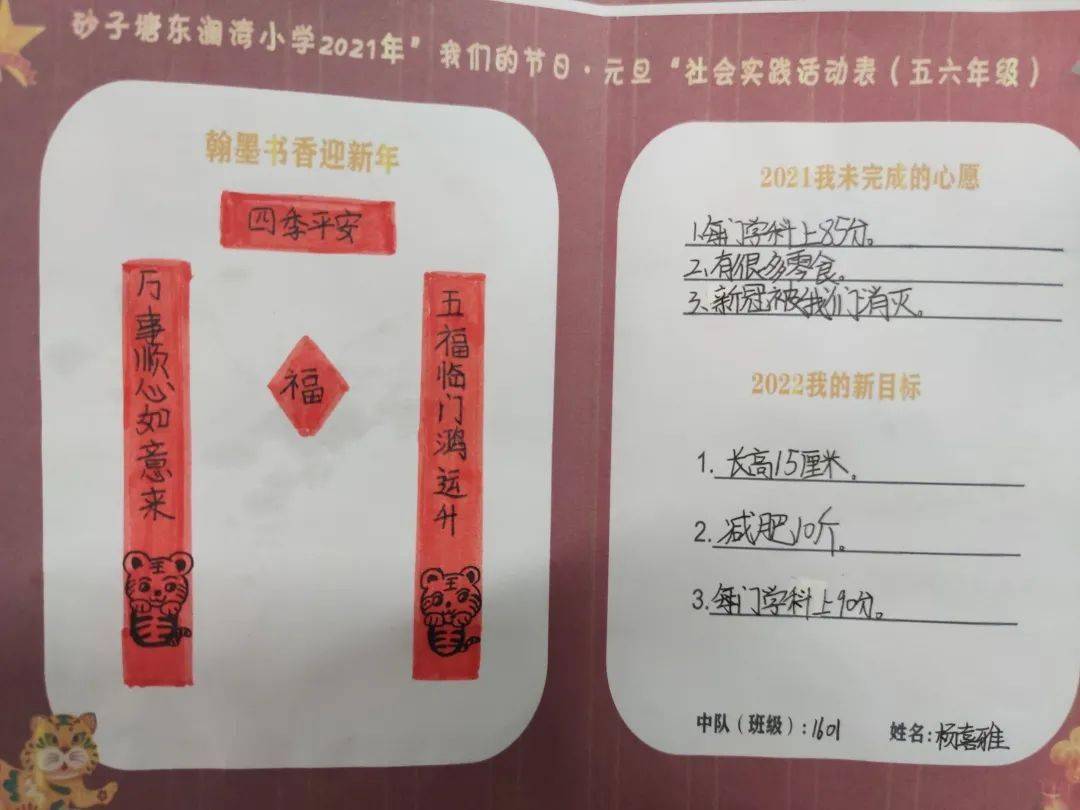 砂子塘东澜湾小学2021年"我们的节日·元旦"社会实践活动表（五六年级）
翰墨书香迎新年
四季平安
万事顺心如意来
福
五福临门鸿运升
王
王
2021我未完成的心愿
1.每门学科上85分。
2.有很多零食。
3.新冠被我们消灭。
2022我的新目标
1.长高15厘米。
2.减肥10斤。
3.每门学科上90分。
中队（班级）:1601 姓名:杨喜雅